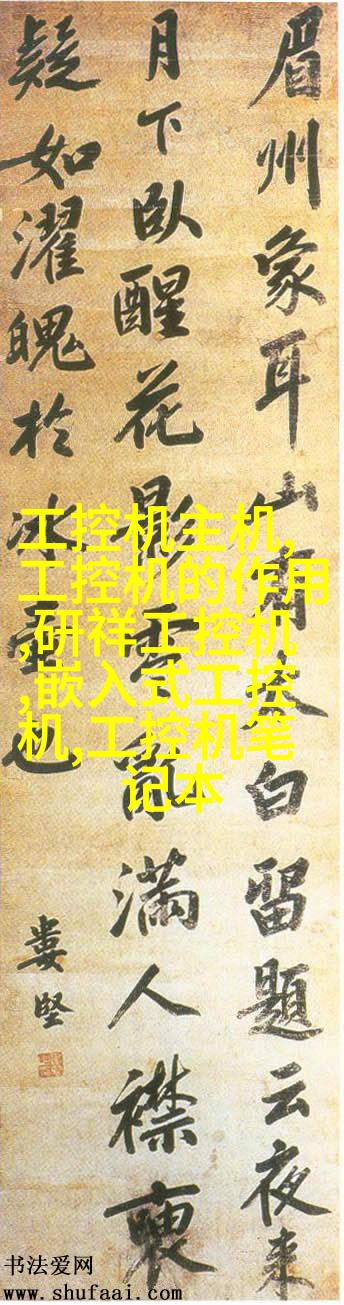 眉州象耳山有太白留題云夜来
月下臥醒花影零亂滿人襟
疑如濯魄於冰壺也
婁堅
工控机主机,
工控机的作用
,研祥工控机
,嵌入式工控
机,工控机笔
记本
书法爱网
www.shufaai.com